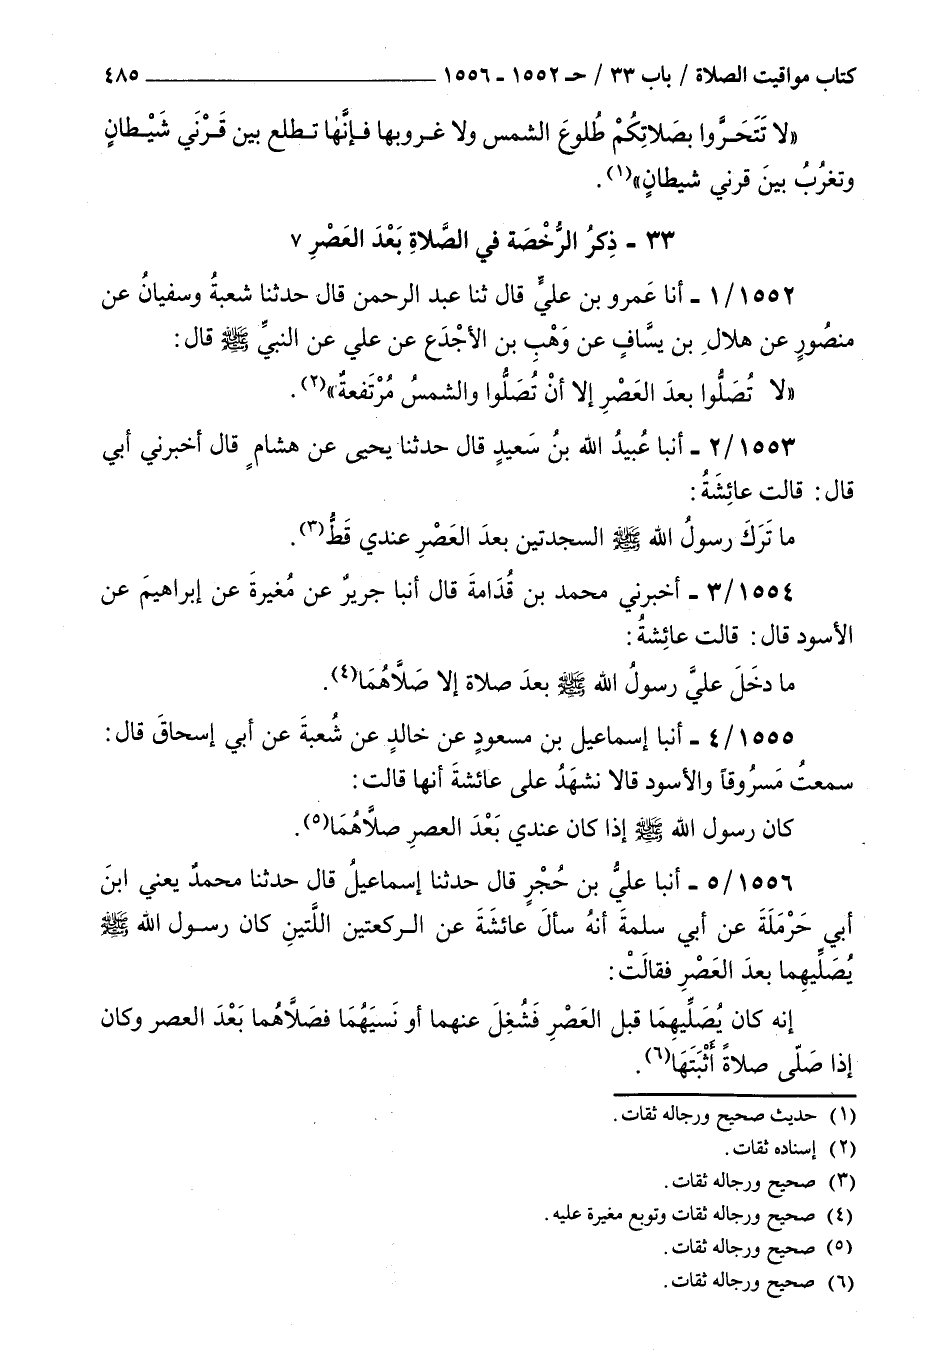 كتاب مواقيت الصلاة / باب ٣٣ / حـ ١٥٥٢ - ١٥٥٦ ٤٨٥
«لا تَتَحَرَّوا بصَلاتِكُمْ طُلوعَ الشمس ولا غروبها فإنَّها تطلع بين قَرْنَي شَيْطانٍ
وتغرُبُ بينَ قرني شيطانٍ»(١).
٣٣ - ذِكرُ الرُّخْصَة في الصَّلاةِ بَعْدَ العَصْرِ ٧
١/١٥٥٢ - أنا عَمرو بن عليٍّ قال ثنا عبد الرحمن قال حدثنا شعبةُ وسفيانُ عن
منصُورٍ عن هلالِ بن يسَّافٍ عن وَهْبِ بن الأجْدَع عن علي عن النبيِّ ﷺ قال:
«لا تُصَلُّوا بعدَ العَصْرِ إلا أنْ تُصَلُّوا والشمسُ مُرْتَفعةٌ»(٢).
٢/١٥٥٣ - أنبا عُبيدُ الله بنُ سَعيدٍ قال حدثنا يحيى عن هشامٍ قال أخبرني أبي
قال: قالت عائِشَةُ:
ما تَرَكَ رسولُ الله ﷺ السجدتين بعدَ العَصْرِ عندي قَطُّ(٣).
٣/١٥٥٤ - أخبرني محمد بن قُدَامةَ قال أنبا جريرٌ عن مُغيرةَ عن إبراهيمَ عن
الأسود قال: قالت عائِشةُ:
ما دخَلَ عليَّ رسولُ الله ﷺ بعدَ صلاة إلا صَلَّاهُمَا(٤).
٤/١٥٥٥ - أنبا إسماعيل بن مسعودٍ عن خالدٍ عن شُعبةَ عن أبي إسحاقَ قال:
سمعتُ مَسرُوقاً والأسود قالا نشهَدُ على عائشةَ أنها قالت:
كان رسول الله ﷺ إذا كان عندي بَعْدَ العصرِ صلَّاهُمَا(٥).
٥/١٥٥٦ - أنبا عليُّ بن حُجْرٍ قال حدثنا إسماعيلُ قال حدثنا محمدٌ يعني ابنَ
أبي حَرْمَلَةَ عن أبي سلمةَ أنهُ سألَ عائشَةَ عن الركعتين اللَّتينِ كان رسول الله ﷺ
يُصَلِّيهما بعدَ العَصْرِ فقالَتْ:
إنه كان يُصَلِّيهِمَا قبل العَصْرِ فَشُغِلَ عنهما أو نَسيَهُمَا فصَلَّاهُما بَعْدَ العصر وكان
إذا صَلّى صلاةً أَثْبَتَهَا(٦).
(١) حديث صحيح ورجاله ثقات.
(٢) إسناده ثقات.
(٣) صحيح ورجاله ثقات.
(٤) صحيح ورجاله ثقات وتوبع مغيرة عليه.
(٥) صحيح ورجاله ثقات.
(٦) صحيح ورجاله ثقات.